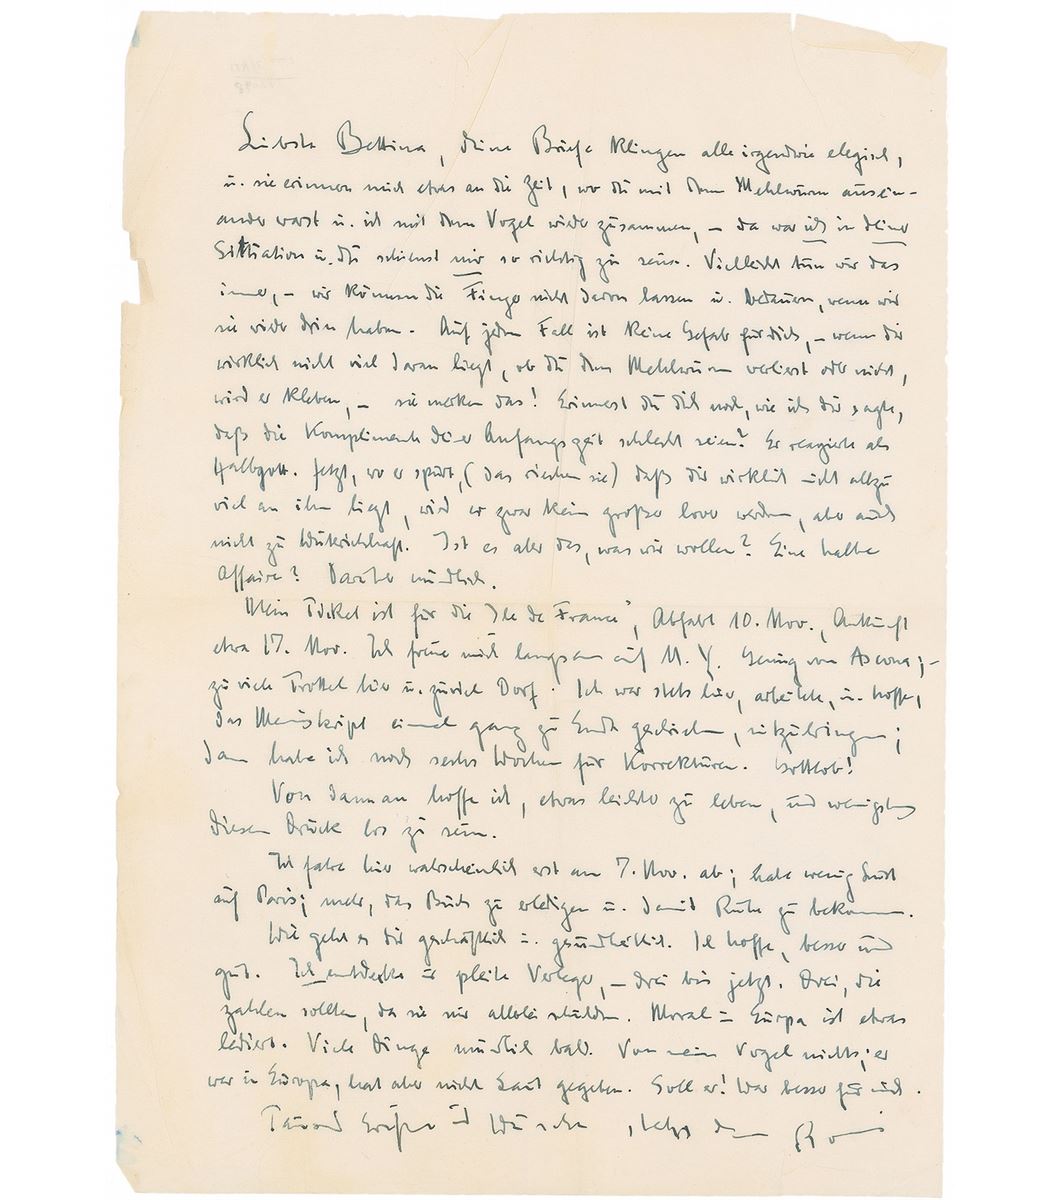 Liebste Bettina, deine Briefe klingen alle irgendwie elegisch,
u. sie erinnern mich etwas an die Zeit, wo du mit dem Mehlwurm ausein-
ander warst u. ich mit dem Vogel wieder zusammen, – da war ich in deiner
Situation u. du schienst mir so richtig zu sein. Vielleicht tun wir das
immer, – wir können die Finger nicht davon lassen u. bedauern, wenn wir
sie wieder drin haben. Auf jeden Fall ist keine Gefahr für dich, – wenn dir
wirklich nicht viel daran liegt, ob du den Mehlwurm verlierst oder nicht,
wird er kleben, – sie merken das! Erinnerst du dich noch, wie ich dir sagte,
daß die Komplimente deiner Anfangszeit schlecht seien? Er reagierte als
Halbgott. Jetzt, wo er spürt, (das riechen sie) daß dir wirklich nicht allzu
viel an ihm liegt, wird er zwar kein großer lover werden, aber auch
nicht zu
Ist es aber das, was wir wollen? Eine halbe
Affaire? Darüber mündlich.
Mein Ticket ist für die Ile de France", Abfahrt 10. Nov., Ankunft
etwa 17. Nov. Ich freue mich langsam auf N.Y. Genug von Ascona; –
zu viele Trottel hier u. zuviel Dorf. Ich war stets hier, arbeitete, u. hoffe,
das Manuskript einmal ganz zu Ende geschrieben, mitzubringen;
dann habe ich noch sechs Wochen für Korrekturen. Gottlob!
Von dann an hoffe ich, etwas leichter zu leben, und wenigstens
diesen Druck los zu sein.
Ich fahre hier wahrscheinlich erst am 7. Nov. ab; habe wenig Lust
auf Paris; mehr, das Buch zu erledigen u. damit Ruhe zu bekommen.
Wie geht es dir geschäftlich u. gesundheitlich. Ich hoffe, besser und
gut. Ich entdeckte nur pleite Verleger, – drei bis jetzt. Drei, die
zahlen sollten, da sie mir allerlei schulden. Moral in Europa ist etwas
lädiert. Viele Dinge mündlich bald. Von mein Vogel nichts; er
war in Europa, hat aber nicht Laut gegeben. Soll er! War besser für mich.
Tausend Grüße und Wünsche, stets dein Boni